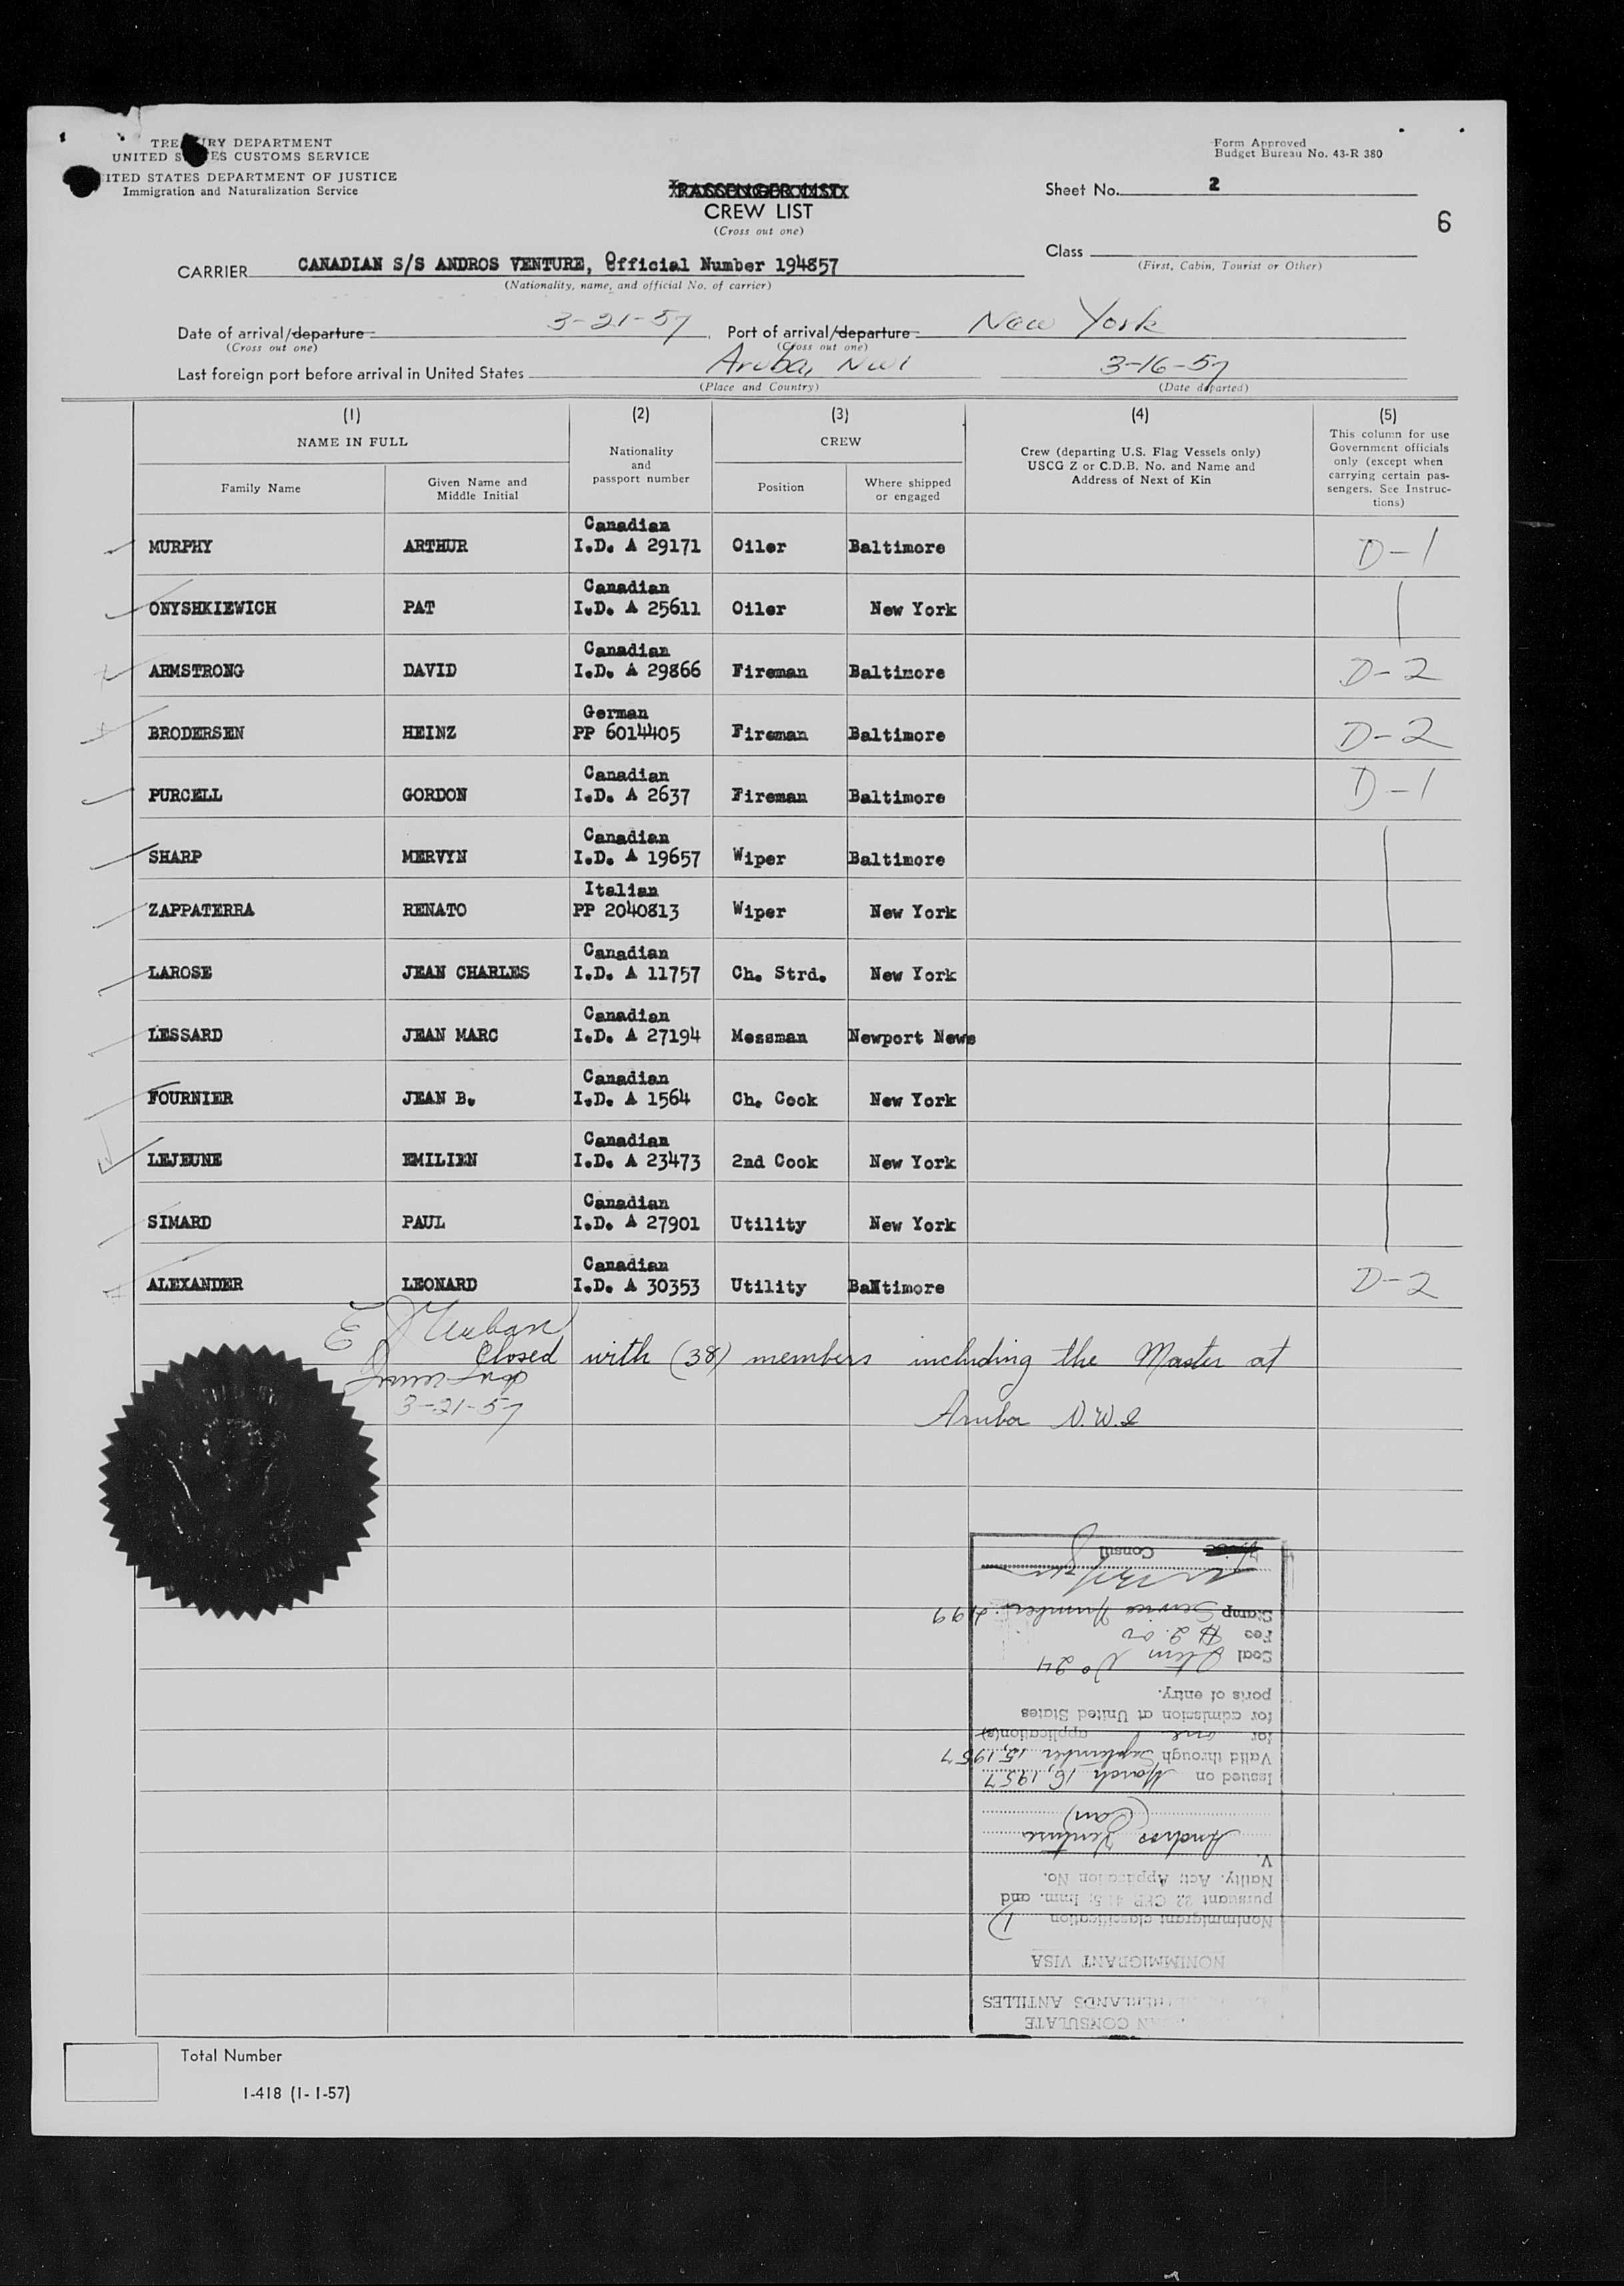 TREASURY DEPARTMENT
UNITED STATES CUSTOMS SERVICE
UNITED STATES DEPARTMENT OF JUSTICE
Immigration and Naturalization Service
Form Approved
Budget Bureau No. 43-R 380
PASSENGER LIST
CREW LIST
(Cross out one)
Sheet No. 2
6
Class
(First, Cabin, Tourist or Other)
CARRIER CANADIAN S/S ANDROS VENTURE, Official Number 194857
(Nationality, name, and official No. of carrier)
Date of arrival/departure 3-21-57, Port of arrival/departure New York
(Cross out one) (Cross out one)
Last foreign port before arrival in United States Aruba, NWI 3-16-57
(Place and Country) (Date departed)
(1) (2) (3) (4) (5)
NAME IN FULL
Family Name
Given Name and Middle Initial
Nationality and passport number
CREW
Position
Where shipped or engaged
Crew (departing U.S. Flag Vessels only)
USCG Z or C.D.B. No. and Name and
Address of Next of Kin
This column for use
Government officials
only (except when
carrying certain pas-
sengers. See Instruc-
tions)
Canadian
MURPHY ARTHUR I.D. A 29171 Oiler Baltimore D-1
Canadian
ONYSHKIEWICH PAT I.D. A 25611 Oiler New York
Canadian
ARMSTRONG DAVID I.D. A 29866 Fireman Baltimore D-2
German
BRODERSEN HEINZ PP 6014405 Fireman Baltimore D-2
Canadian
PURCELL GORDON I.D. A 2637 Fireman Baltimore D-1
Canadian
SHARP MERVYN I.D. A 19657 Wiper Baltimore
Italian
ZAPPATERRA RENATO PP 2040813 Wiper New York
Canadian
LAROSE JEAN CHARLES I.D. A 11757 Ch. Strd. New York
Canadian
LESSARD JEAN MARC I.D. A 27194 Messman Newport News
Canadian
FOURNIER JEAN B. I.D. A 1564 Ch. Cook New York
Canadian
LEJEUNE EMILIEN I.D. A 23473 2nd Cook New York
Canadian
SIMARD PAUL I.D. A 27901 Utility New York
Canadian
ALEXANDER LEONARD I.D. A 30353 Utility Baltimore D-2
Closed with (38) members including the Master at
3-21-57
Aruba N.W.I
CONSULATE
NETHERLANDS ANTILLES
NONIMMIGRANT VISA
Nonimmigrant classification D
pursuant 22 CFR 41.5; Imm. and
Natlty. Act; Application No.
V.
Andros Venture
(Can)
Issued on March 16, 1957
Valid through September 15, 1957
for one application(s)
for admission at United States
ports of entry.
Seal Item No 24
Fee $2.00
Stamp Service Number
Vice Consul
Total Number
I-418 (1-1-57)